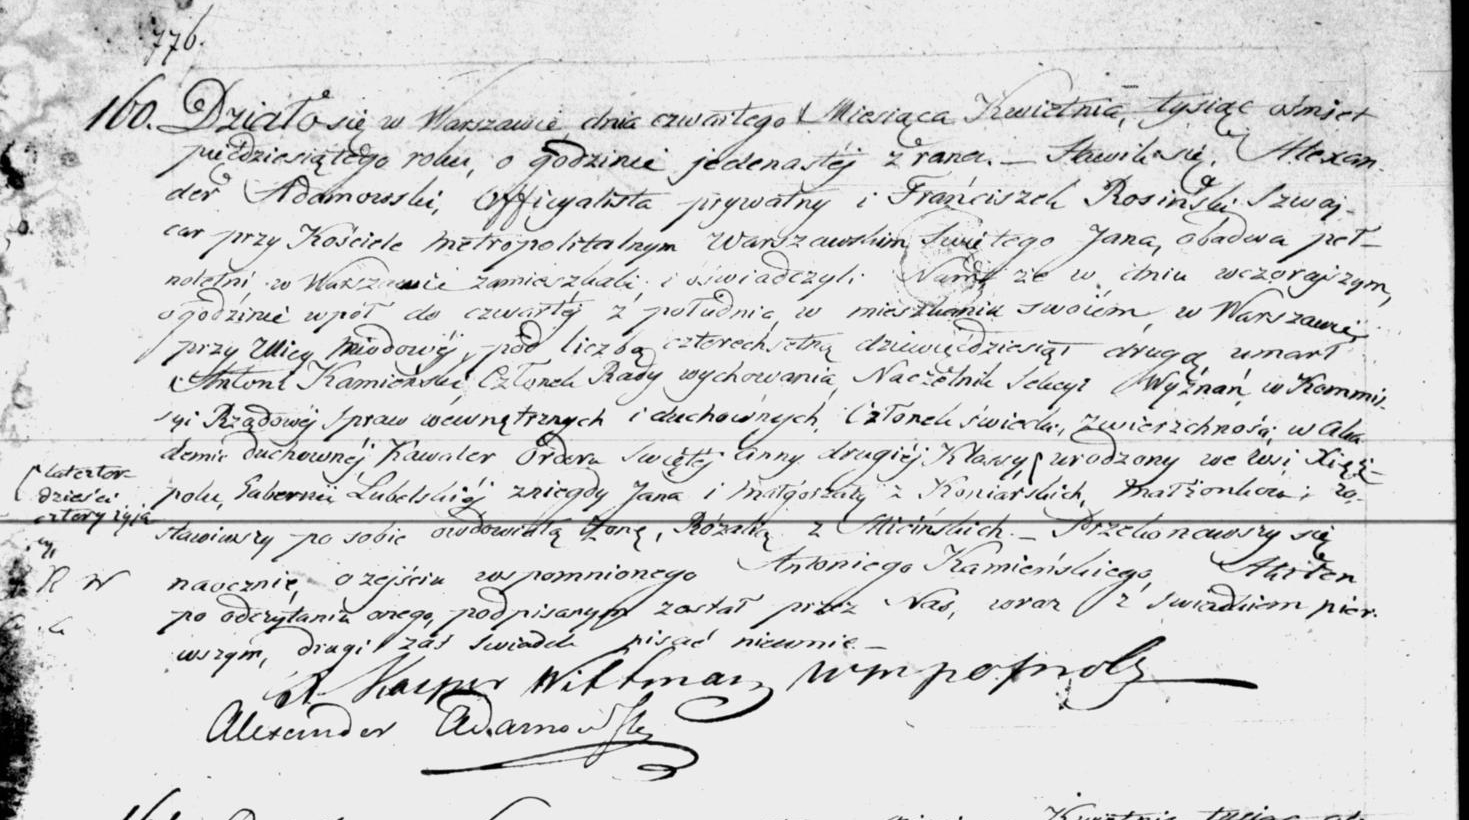 776.
160. Działo się w Warszawie, dnia czwartego Miesiąca Kwietnia, tysiąc ośmset
pięćdziesiątego roku, o godzinie jedenastéj z rana. — Stawili się, Alexan-
der Adamowski, Officyalista prywatny i Franciszek Rosiński Szwaj-
car przy Kościele metropolitalnym Warszawskim Świętego Jana, obadwa peł-
noletni w Warszawie zamieszkali i oświadczyli Nam że w dniu wczorajszym,
o godzinie wpół do czwartéj z południa, w mieszkaniu swoiém, w Warszawie
przy Ulicy Miodowéj, pod liczbą czterechsetną dziewięćdziesiąt drugą umarł
Antoni Kamieński, Członek Rady wychowania, Naczelnik Sekcyi Wyznań, w Kommis-
syi Rządowéj Spraw wewnętrznych i duchownych, Członek świecki, Zwierzchności, w Aka-
demii duchownéj Kawaler Orderu Świętéj Anny drugiéj Klassy, urodzony we Wsi Xięż-
polu, Gubernii Lubelskiéj z niegdy Jana i Małgorzaty z Koniarskich, małżonków; zo-
lat czter-
dzieści
cztery żyją-
cy,
stawiwszy po sobie owdowiałą żonę, Różalią z Micińskich. — Przekonawszy się
R W
naocznie, o zejściu wspomnionego Antoniego Kamieńskiego, Akt ten
po odczytaniu onego, podpisanym został przez Nas, wraz z świadkiem pier-
wszym, drugi zaś świadek pisać nieumie —
X. Kacper Wittman
Alexander Adamowski